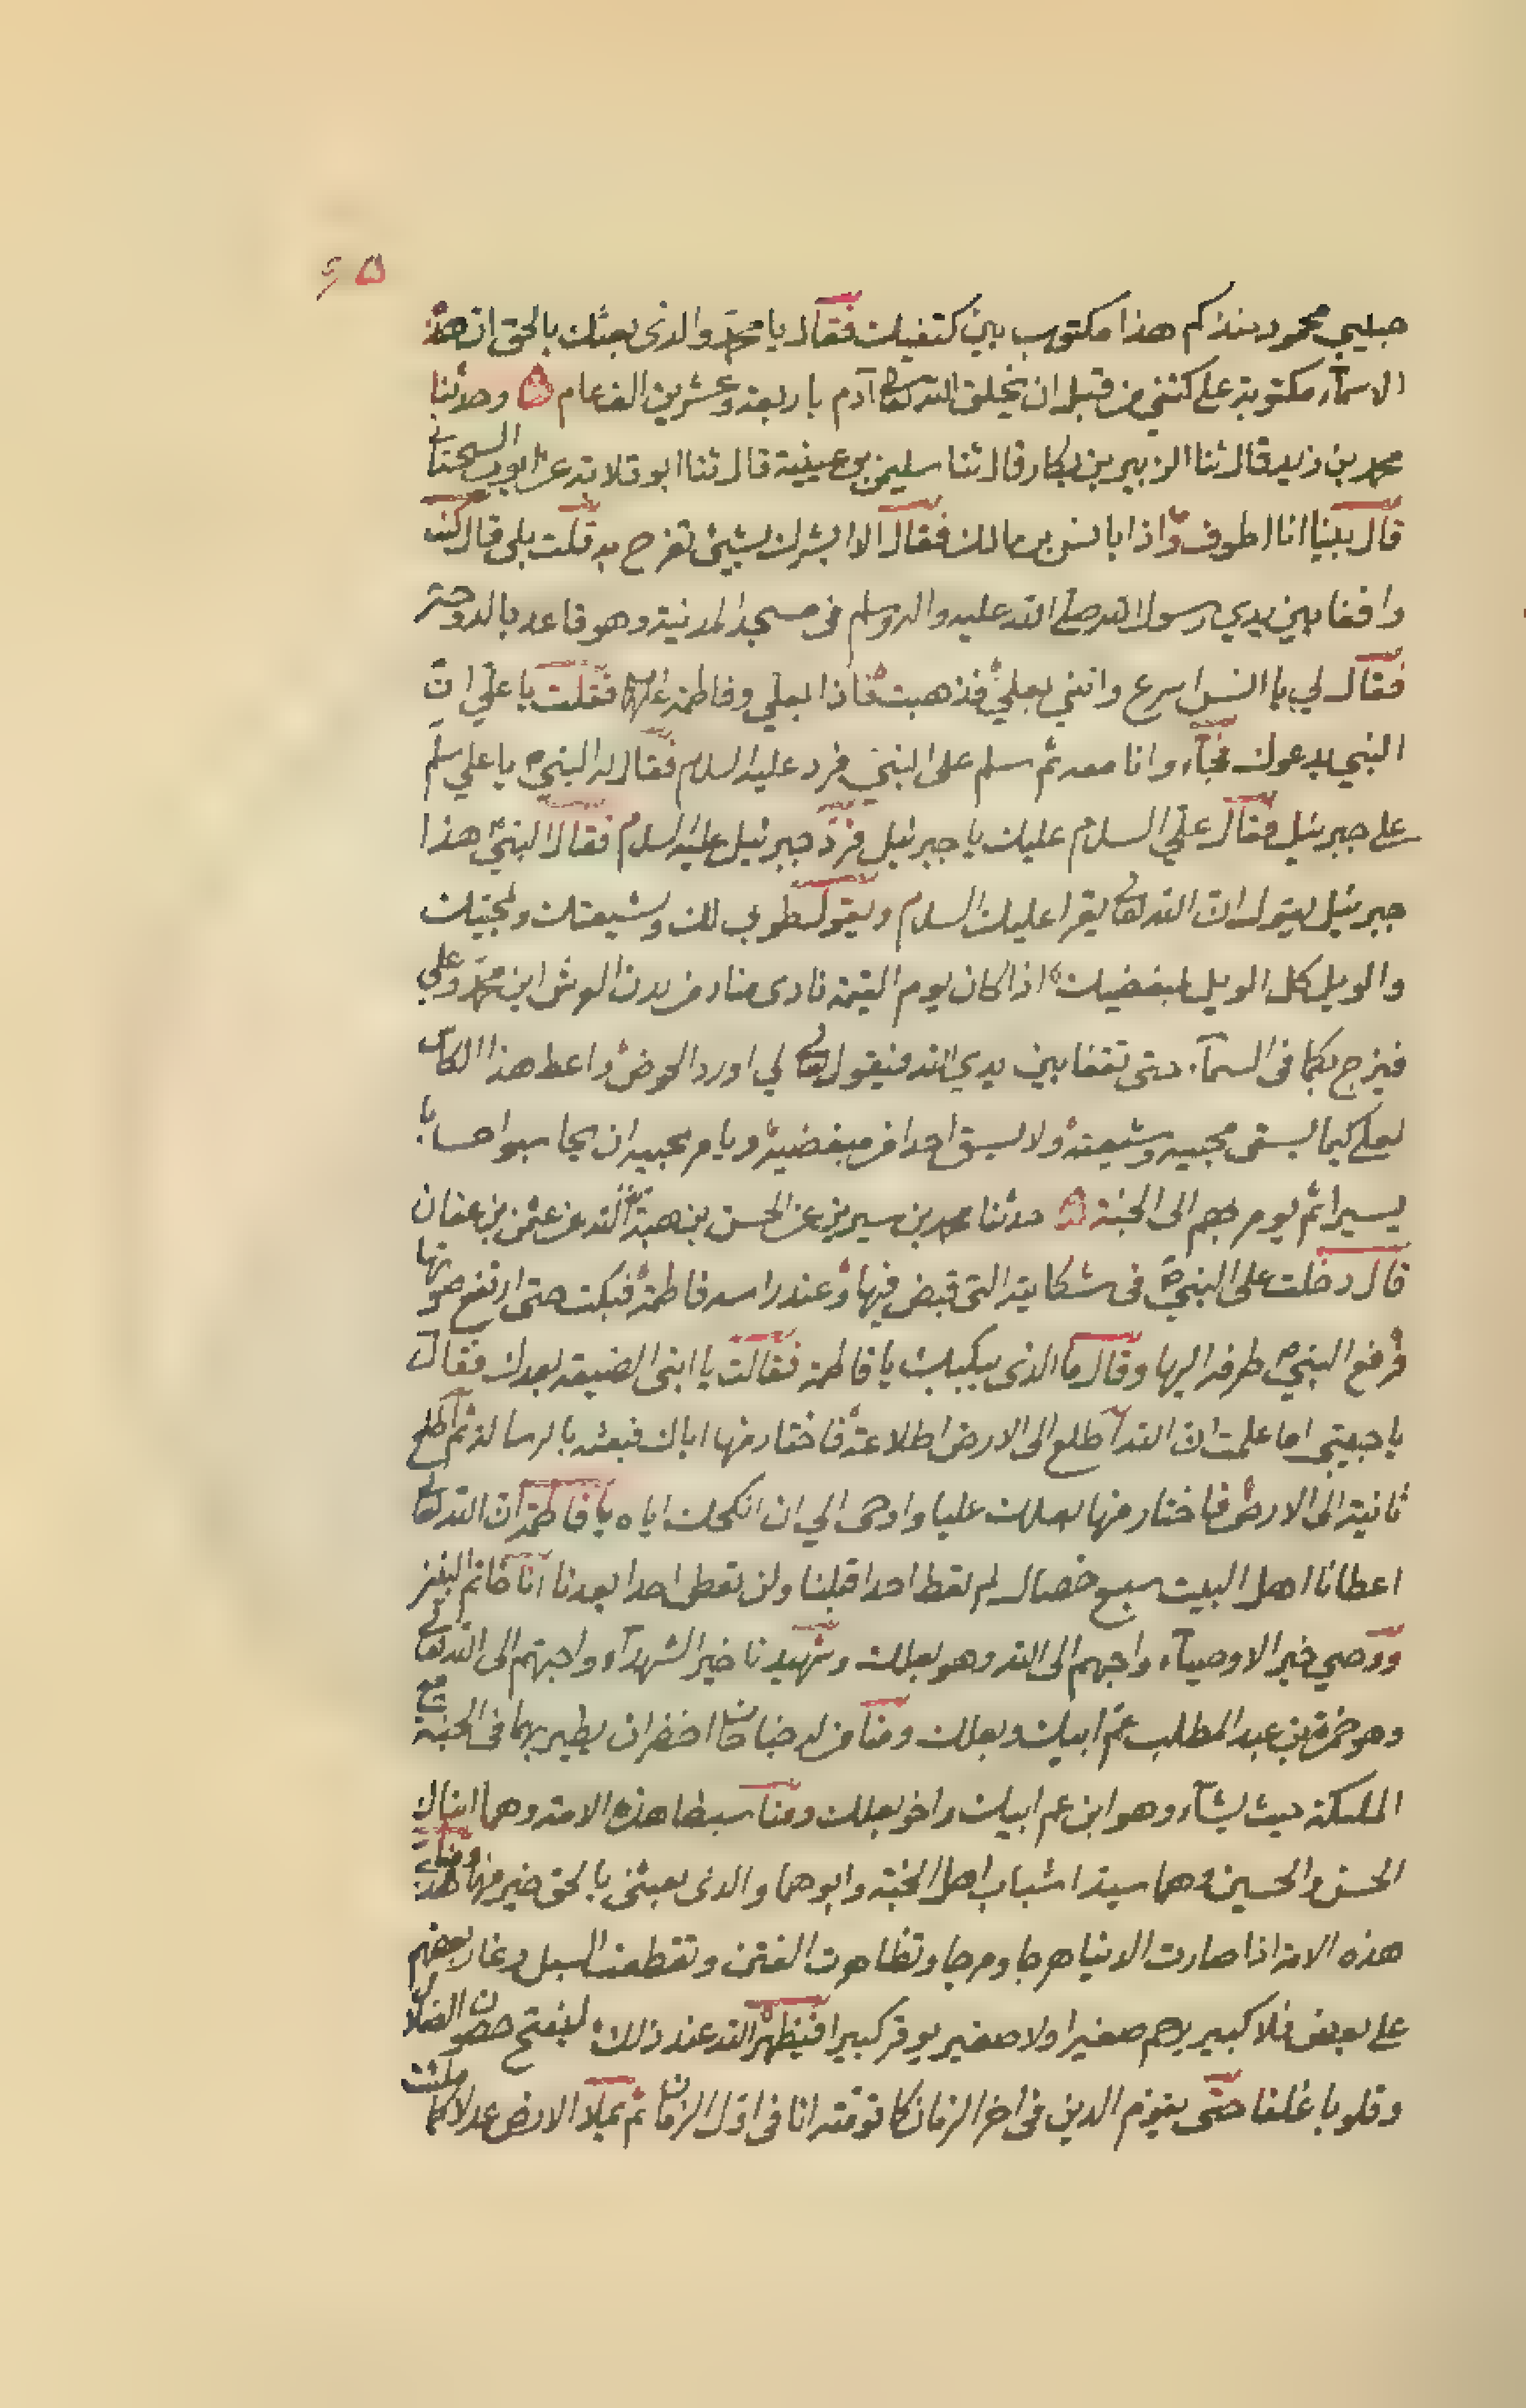 حبيبي محمود منذكم هذا مكتوب بين كتفيك فقال يا محمد والذى بعثك بالحق ان هذه
الاسمآء مكتوبة على كتفي من قبل ان يخلق الله تعالى آدم باربعة وعشرين الف عام ۵ وحدثنا
محمد بن زيد قال ثنا الزبير بن بكار قال ثنا سليمن بن عيينة قال ثنا ابو قلابة عن ايوب السجستانى
قال بينا انا اطوف واذا بانس بن مالك فقال الا ابشرك بشيئ تفرح به قلت بلى قال كنت
واقفا بين يدي رسول الله صلى الله عليه واله وسلم فى مسجد المدينة وهو قاعد بالروضة
فقال لي يا انس اسرع وائتني بعلي فذهبت فاذا بعلي وفاطمة عليهما فقلت يا علي ان
النبي يدعوك فجآء وانا معه ثم سلم على النبي فرد عليه السلام فقال له النبي يا علي سلم
على جبرئيل فقال علي السلام عليك يا جبرئيل فرد جبرئيل عليه السلام فقال النبي هذا
جبرئيل يقول ان الله تعالى يقرا عليك السلام ويقول طوبى لك ولشيعتك ولمحبيك
والويل كل الويل لمبغضيك اذا كان يوم القيمة نادى مناد من بطنان العرش اين محمد وعلي
فيزج بكما فى السمآء حتى تقفا بين يدي الله فيقول تعالى لي اورد الحوض واعط هذا الكاس
لعلي كيما يسقى محبيه وشيعته ولا يسق احدا من مبغضيه ويامر بمحبيه ان يحاسبوا حسابا
يسيرا ثم يومر بهم الى الجنة ۵ حدثنا محمد بن سيرين عن الحسن بن هبة الله عن عثمن بن عفان
قال دخلت على النبي فى شكايته التى قبض فيها وعند راسه فاطمة فبكت حتى ارتفع صوتها
فرفع النبي طرفه اليها وقال ما الذى يبكيك يا فاطمة فقالت يا ابتى الضيعة بعدك فقال
يا حبيبتي اما علمت ان الله اطلع الى الارض اطلاعة فاختار منها اباك فبعثه بالرسالة ثم اطلع
ثانية الى الارض فاختار منها بعلك عليا واوحى الي ان انكحك اياه يا فاطمة ان الله تعالى
اعطانا اهل البيت سبع خصال لم يعط احدا قبلنا ولن يعطى احدا بعدنا انا خاتم النبيين
ووصيي خير الاوصيآء واحبهم الى الله وهو بعلك وشهيدنا خير الشهدآء واحبهم الى الله تعالى
وهو حمزة بن عبد المطلب عم ابيك وبعلك ومنا من له جناحان اخضران يطير بهما فى الجنة مع
الملئكة حيث يشآء وهو ابن عم ابيك واخو بعلك ومنا سبطا هذه الامة وهما ابناك
الحسن والحسين وهما سيدا شباب اهل الجنة وابوهما والذى بعثني بالحق خير منهما ومنا مهدى
هذه الامة اذا صارت الدنيا هرجا ومرجا وتظاهرت الفتن وتقطعت السبل وغار بعضهم
على بعض فلا كبير يرحم صغيرا ولا صغير يوقر كبيرا فيظهر الله عند ذلك ليفتح حصون الضلال
وقلوبا غلفا حتى يقوم الدين فى اخر الزمان كما قوقته انا فى اول الزمان ثم يملا الارض عدلا كما ملئت